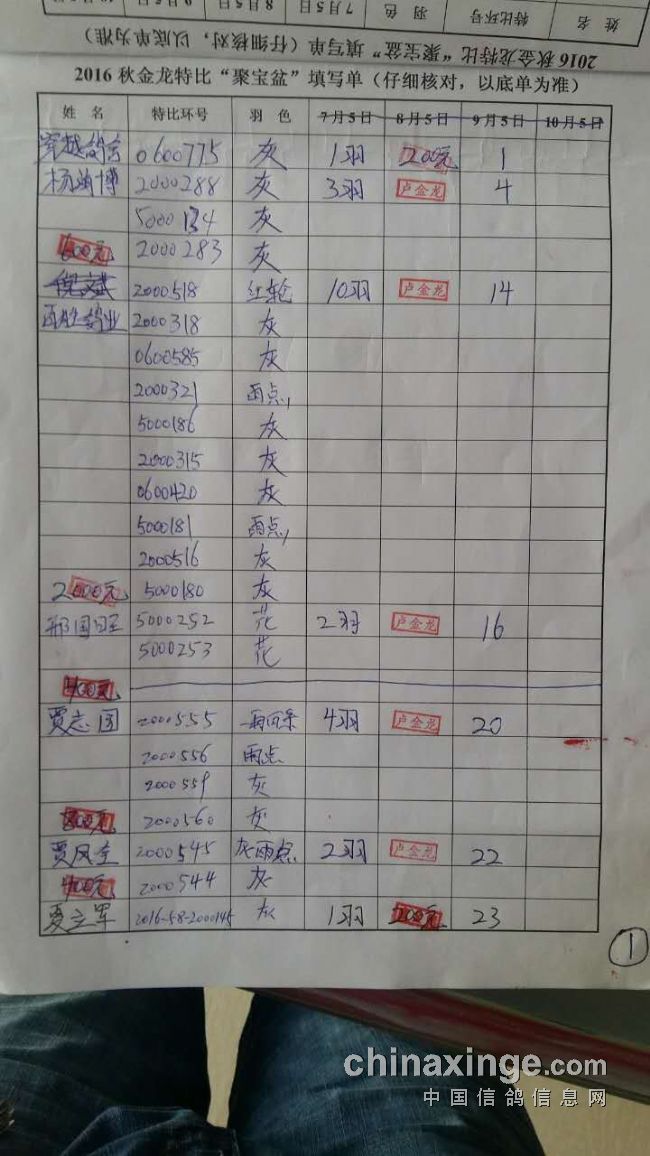 姓 名 特比环号 羽 色 7月5日 8月5日 9月5日
2016 秋金龙特比“聚宝盆”填写单（仔细核对，以底单为准）
2016 秋金龙特比“聚宝盆”填写单（仔细核对，以底单为准）
姓 名 特比环号 羽 色 7月5日 8月5日 9月5日 10月5日
0600775 灰 1羽 200元 1
2000288 灰 3羽 卢金龙 4
5000134 灰
600元 2000283 灰
倪斌 2000518 红轮 10羽 卢金龙 14
2000318 灰
0600585 灰
2000321 雨点
5000186 灰
2000315 灰
0600420 灰
5000181 雨点
2000516 灰
2000元 5000180 灰
邢国旺 5000252 花 2羽 卢金龙 16
5000253 花
400元
贾志国 2000555 4羽 卢金龙 20
2000556 雨点
2000559 灰
800元 2000560 灰
2000545 灰雨点 2羽 卢金龙 22
400元 2000544 灰
夏立军 2016-58-2000145 灰 1羽 200元 23
1
chinaxinge.com
中国信鸽信息网